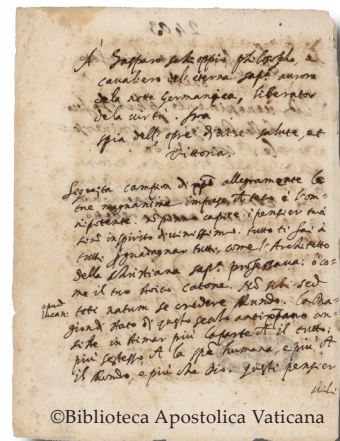 A' Gasparo scioppio philosopho, e
cavaliero dell'eterna sap.ª aurora
dela notte Germanica, liberator
dela virtu. fra
spia dell'opre di
salute, et
Vittoria.
Seguita campion di allegramente le
tue magnanime imprese
nipotente. nõ ponno capire i pensier tuoi
sinõ in spirito divinissimo. tutto ti fai à
tutti p guadagnar tutti, come l'Architetto
della christiana sap.ª professava: o co-
me il tuo stoico catone. Nõ sibi sed
toti natum se credere Mundo. la
gion di stato di questo secolo antipono con-
siste in stimar più la parte che il tutto:
più se stesso, che la humana, e più che
il Mondo, e più che Dio. questi pensier
apud
Lucan:
©Biblioteca Apostolica Vaticana